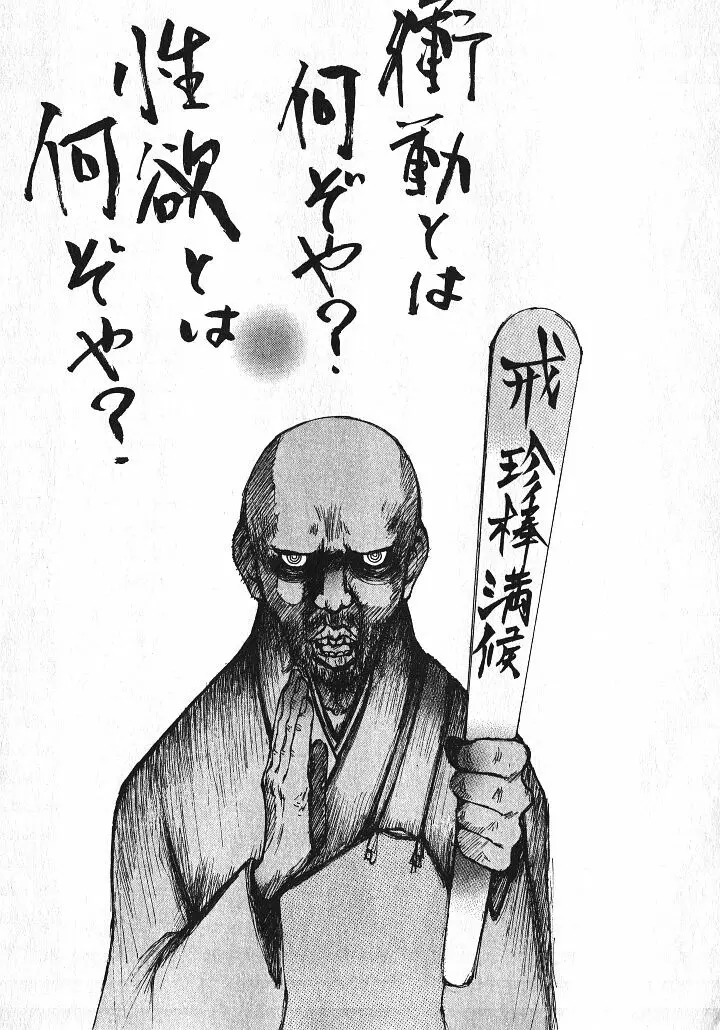 衝動とは
何ぞや?
性欲とは
何ぞや?
戒
珍棒満候